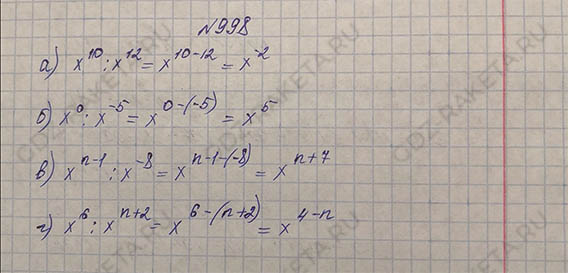 №998
а) x^10 : x^12 = x^10-12 = x^-2
б) x^0 : x^-5 = x^0-(-5) = x^5
в) x^n-1 : x^-8 = x^n-1-(-8) = x^n+7
г) x^6 : x^n+2 = x^6-(n+2) = x^4-n
GDZ-RAKETA.RU